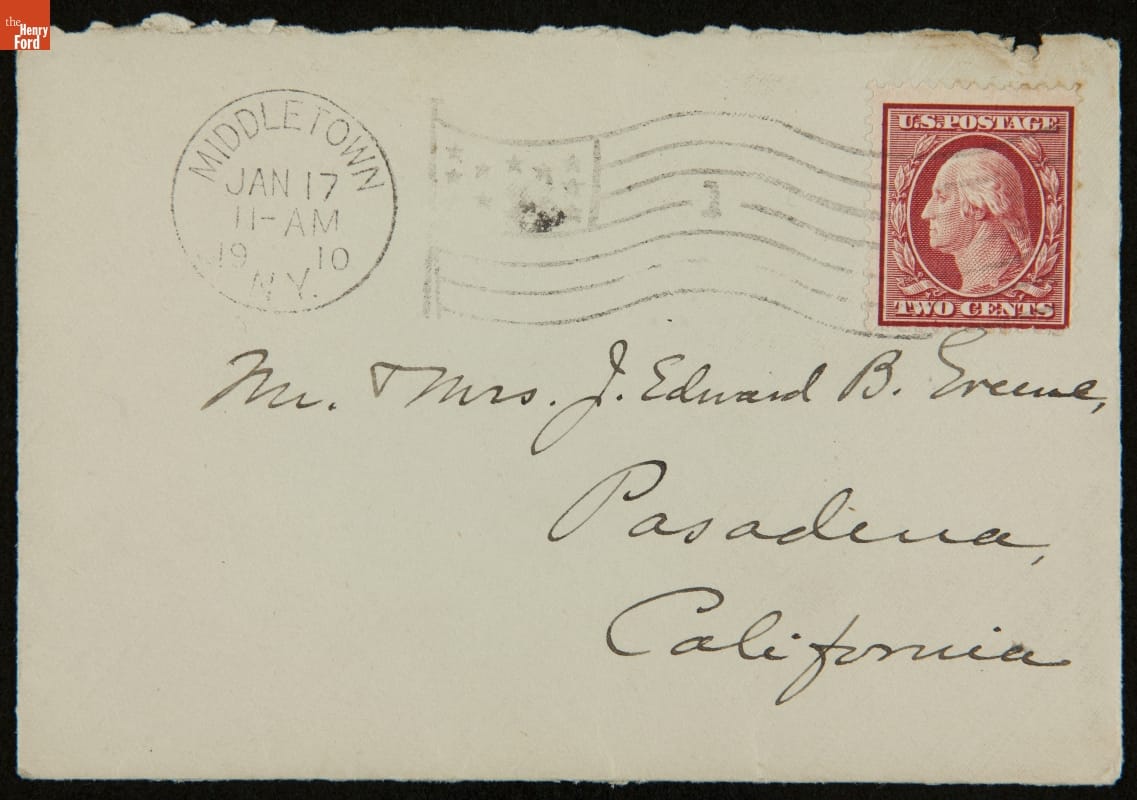 the
Henry
Ford
MIDDLETOWN
JAN 17
11-AM
19 10
N.Y.
1
U.S. POSTAGE
TWO CENTS
Mr. & Mrs. J. Edward B. Greene,
Pasadena,
California